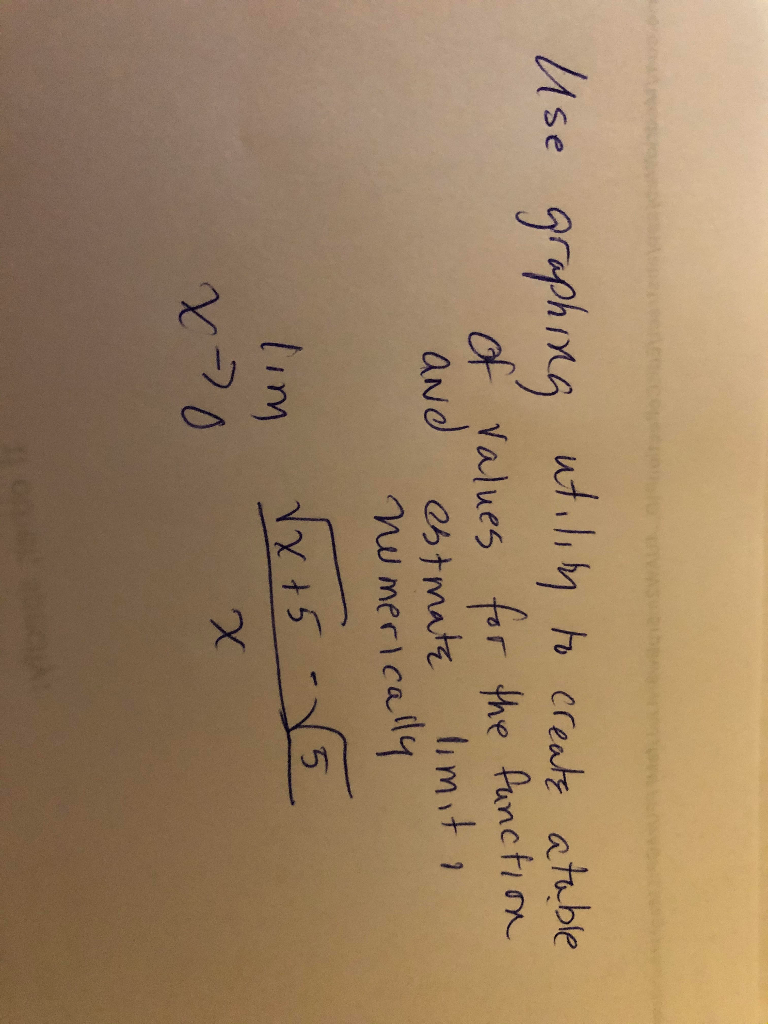 Use graphing utility to create a table
of values for the function
and estmate limit,
numerically
lim √x+5 - √5
x→0 x